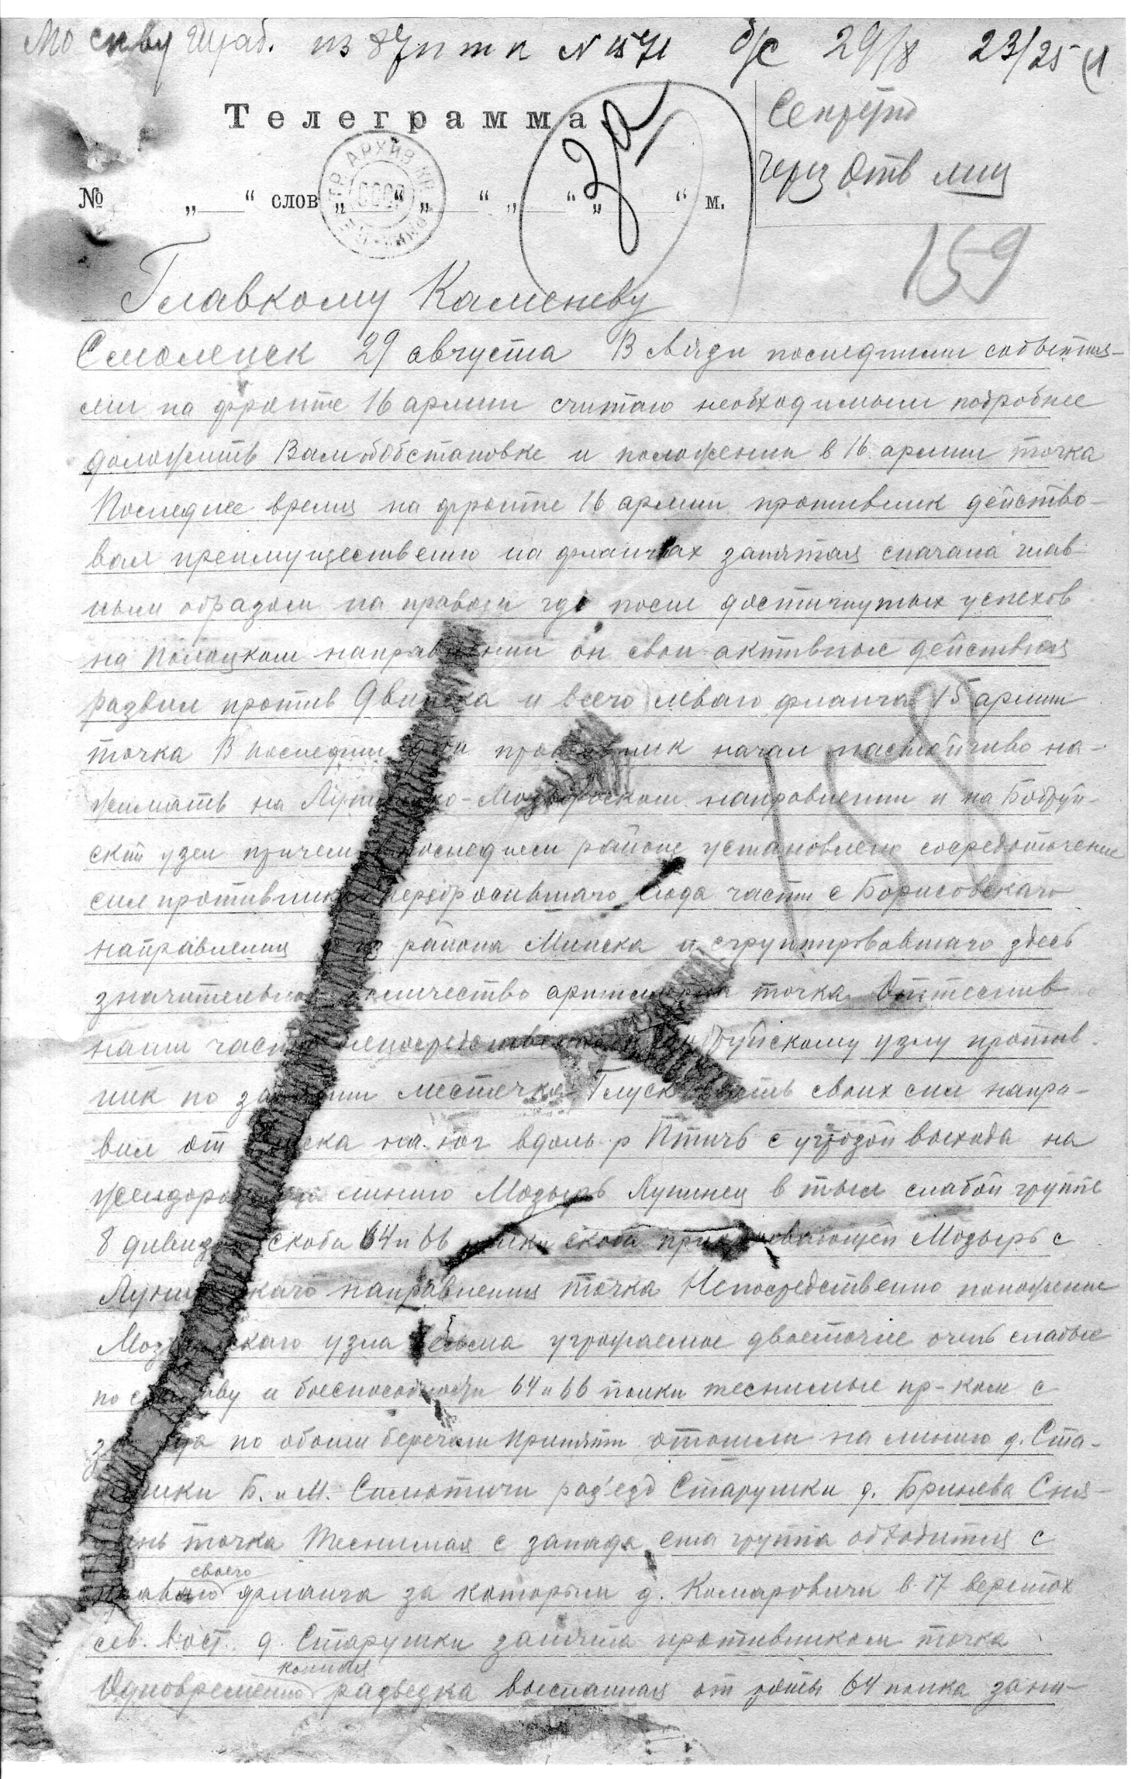 Москву Штаб. из
б/с 29/8 23/25
Телеграмма
Секретно
Через Отв лиц
За
№ „ “ слов „ “ „ “ „ “ „ “ м.
АРХИВ КР
СССР
159
Главкому Каменеву
Смоленск 29 августа В виду последними событи-
ями на фронте 16 армии считаю необходимым подробнее
доложить Вам об обстановке и положении в 16 армии точка
Последнее время на фронте 16 армии противник действо-
вал преимущественно на флангах занятая сначала глав-
ным образом на правом где после достигнутых успехов
на Полоцком направлении он свои активные действия
развил против Двинска и всего левого фланга 15 армии
точка В последнии дни противник начал настойчиво на-
жимать на Лунинецко-Мозырском направлении и на Бобруй-
158
ский узел причем последнем районе установлено сосредоточение
сил противника перебросившаго сюда части с Борисовскаго
направления из района Минска и сгруппировавшаго здесь
значительное количество артиллерии точка Оттеснив
наши части непосредственно к Бобруйскому узлу против-
ник по занятии местечка Глуск часть своих сил напра-
вил от Глуска на юг вдоль р Птичь с угрозой выхода на
желдорожную линию Мозырь Лунинец в тыл слабой группе
8 дивизии скоба 64 и 66 полки скоба прикрывающей Мозырь с
Лунинецкаго направления точка Непосредственно положение
Мозырскаго узла весьма угрожаемое двоеточие очень слабые
по составу и боеспособности 64 и 66 полки теснимые пр-ком с
запада по обоим берегам Припяти отошли на линию д. Ста-
Б. и М. Силютичи раз'езд Старушки д. Бринева Сня-
дынь точка Теснимая с запада эта группа обходится с
своего
праваго фланга за которым д. Комаровичи в 17 верстах
сев. вост. д. Старушки занята противником точка
конная
Одновременно разведка высланная от роты 64 полка заня-